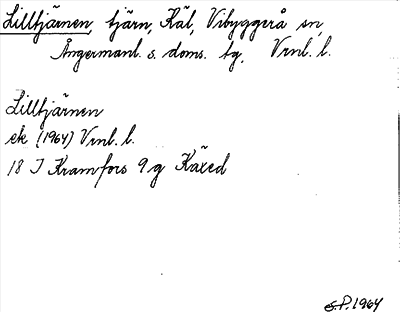 Lilltjärnen, tjärn, Käl, Vibyggerå sn,
Ångermanl. s. doms. tg. Vrnl. l.
Lilltjärnen
ek (1964) Vrnl. l.
18 I Kramfors 9 g Käxed
S.P. 1964